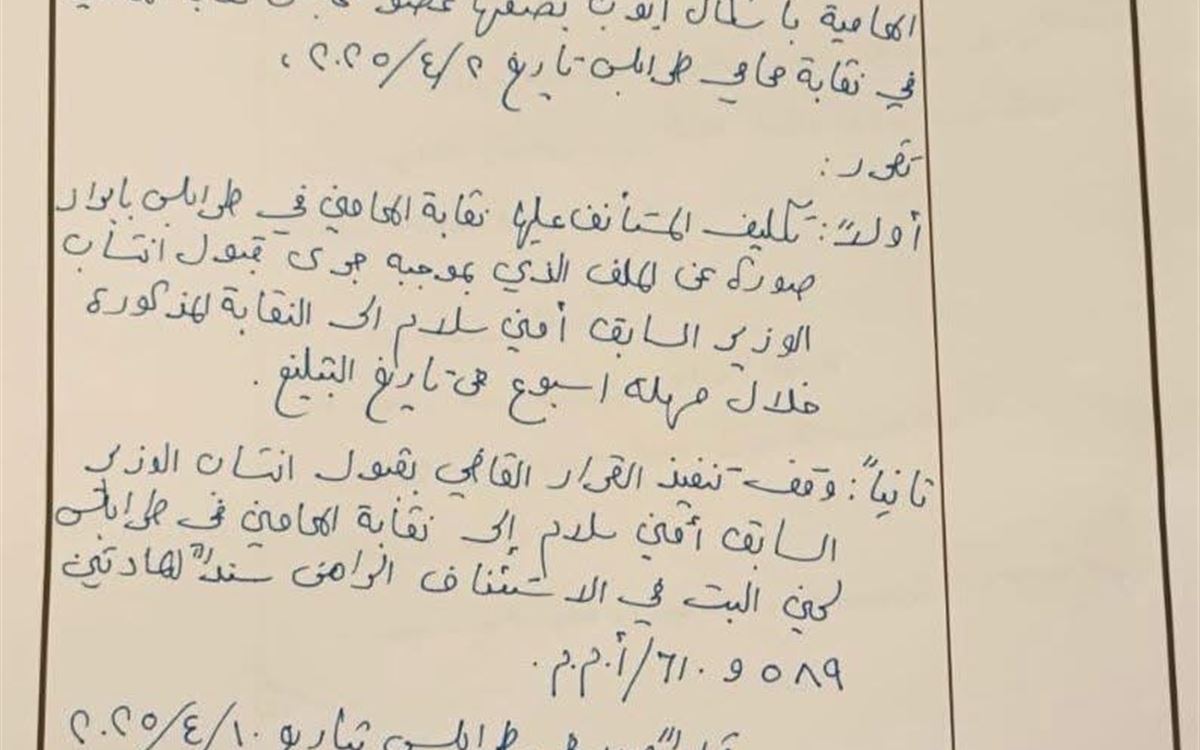 المحامية باسكال ايوب بصفتها عضو
في نقابة محامي طرابلس تاريخ ٢/٤/٢٠٢٥ ،
تقرر :
أولاً : تكليف المستأنف عليها نقابة المحامين في طرابلس بابراز
صورة عن الملف الذي بموجبه جرى قبول انتساب
الوزير السابق أمين سلام الى النقابة المذكورة
خلال مهلة اسبوع من تاريخ التبليغ .
ثانياً : وقف تنفيذ القرار القاضي بقبول انتساب الوزير
السابق أمين سلام إلى نقابة المحامين في طرابلس
لحين البت في الاستئناف الراهن سنداً لمادتين
٥٨٩ و ٦١٠/أ.م.م.
طرابلس بتاريخ ١٠/٤/٢٠٢٥